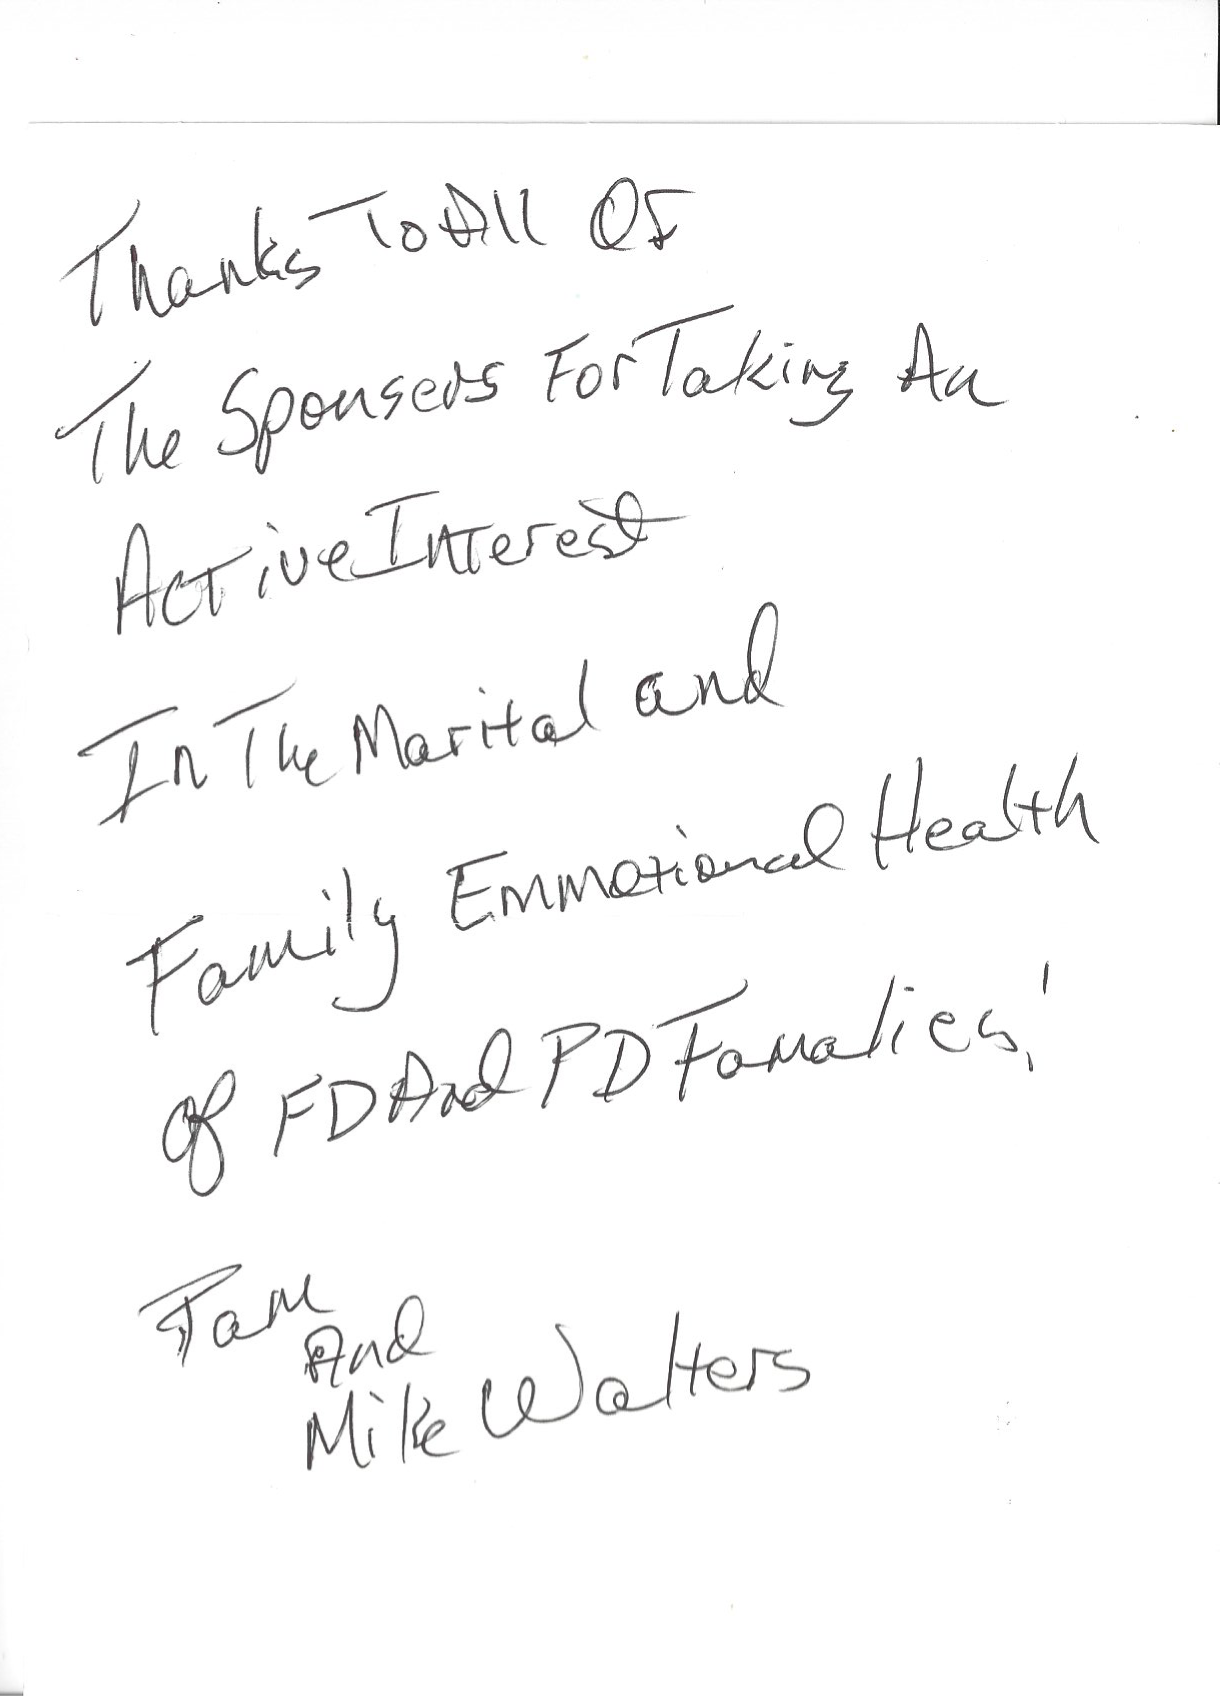 Thanks To All Of
The Sponsers For Taking An
Active Interest
In The Marital and
Family Emmotional Health
of FD And PD Famalies!
Pam
And
Mike Walters